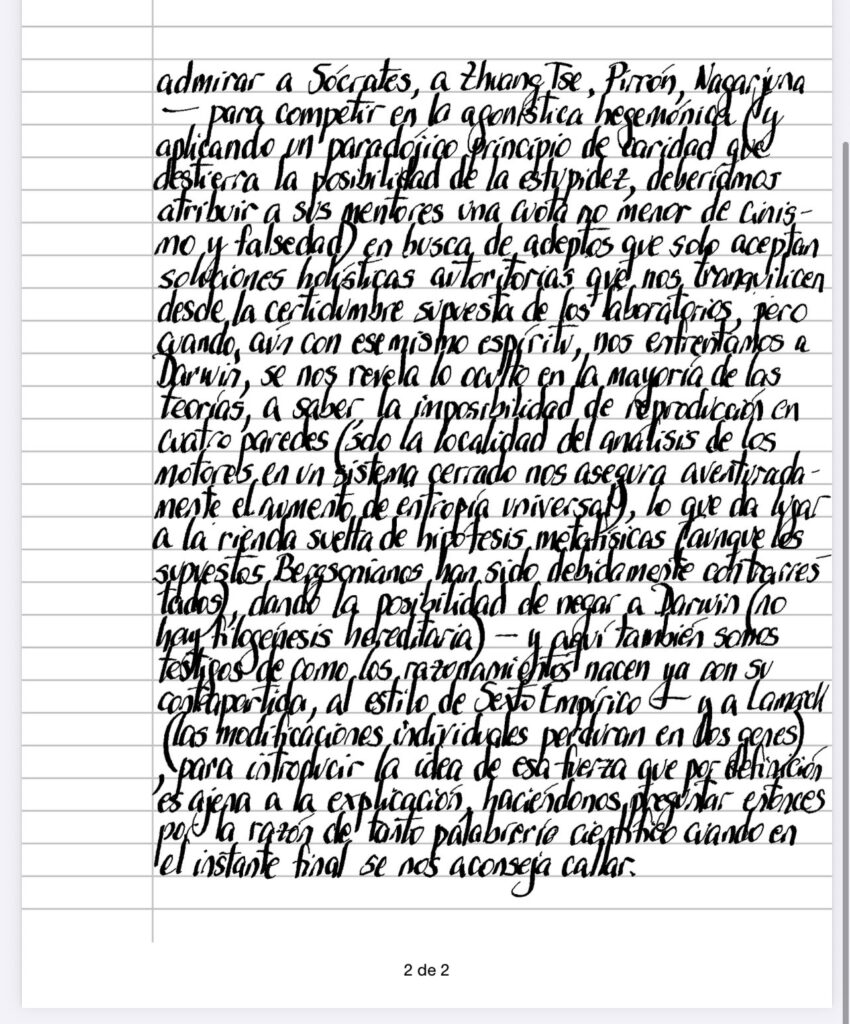 admirar a Sócrates, a Zhuang Tse, Pirrón, Nagarjuna
— para competir en la agonística hegemónica (y
aplicando un paradójico principio de caridad que
destierra la posibilidad de la estupidez, deberíamos
atribuir a sus mentores una cuota no menor de cinis-
mo y falsedad) en busca de adeptos que solo aceptan
soluciones holísticas autoritarias que nos tranquilicen
desde la certidumbre supuesta de los laboratorios, pero
cuando, aún con ese mismo espíritu, nos enfrentamos a
Darwin, se nos revela lo oculto en la mayoría de las
teorías, a saber la imposibilidad de reproducción en
cuatro paredes (solo la localidad del análisis de los
motores en un sistema cerrado nos asegura aventurada-
mente el aumento de entropía universal), lo que da lugar
a la rienda suelta de hipótesis metafísicas (aunque los
supuestos Bergsonianos han sido debidamente contrarres
tados), dando la posibilidad de negar a Darwin (no
hay filogénesis hereditaria) — y aquí también somos
testigos de como los razonamientos nacen ya con su
contrapartida, al estilo de Sexto Empírico — y a Lamarck
(las modificaciones individuales perduran en los genes)
, para introducir la idea de esa fuerza que por definición
es ajena a la explicación, haciéndonos preguntar entonces
por la razón de tanto palabrerío científico cuando en
el instante final se nos aconseja callar.
2 de 2